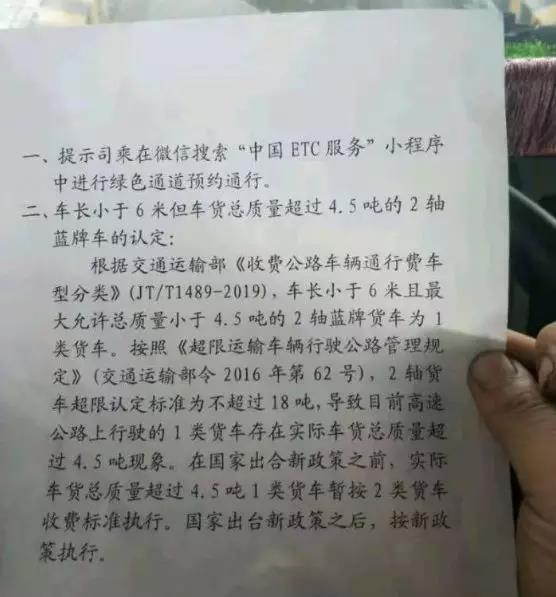 一、提示司乘在微信搜索“中国 ETC 服务”小程序
中进行绿色通道预约通行。
二、车长小于 6 米但车货总质量超过 4.5 吨的 2 轴
蓝牌车的认定：
根据交通运输部《收费公路车辆通行费车
型分类》(JT/T1489-2019)，车长小于 6 米且最
大允许总质量小于 4.5 吨的 2 轴蓝牌货车为 1
类货车。按照《超限运输车辆行驶公路管理规
定》(交通运输部令 2016 年第 62 号)，2 轴货
车超限认定标准为不超过 18 吨，导致目前高速
公路上行驶的 1 类货车存在实际车货总质量超
过 4.5 吨现象。在国家出台新政策之前，实际
车货总质量超过 4.5 吨 1 类货车暂按 2 类货车
收费标准执行。国家出台新政策之后，按新政
策执行。